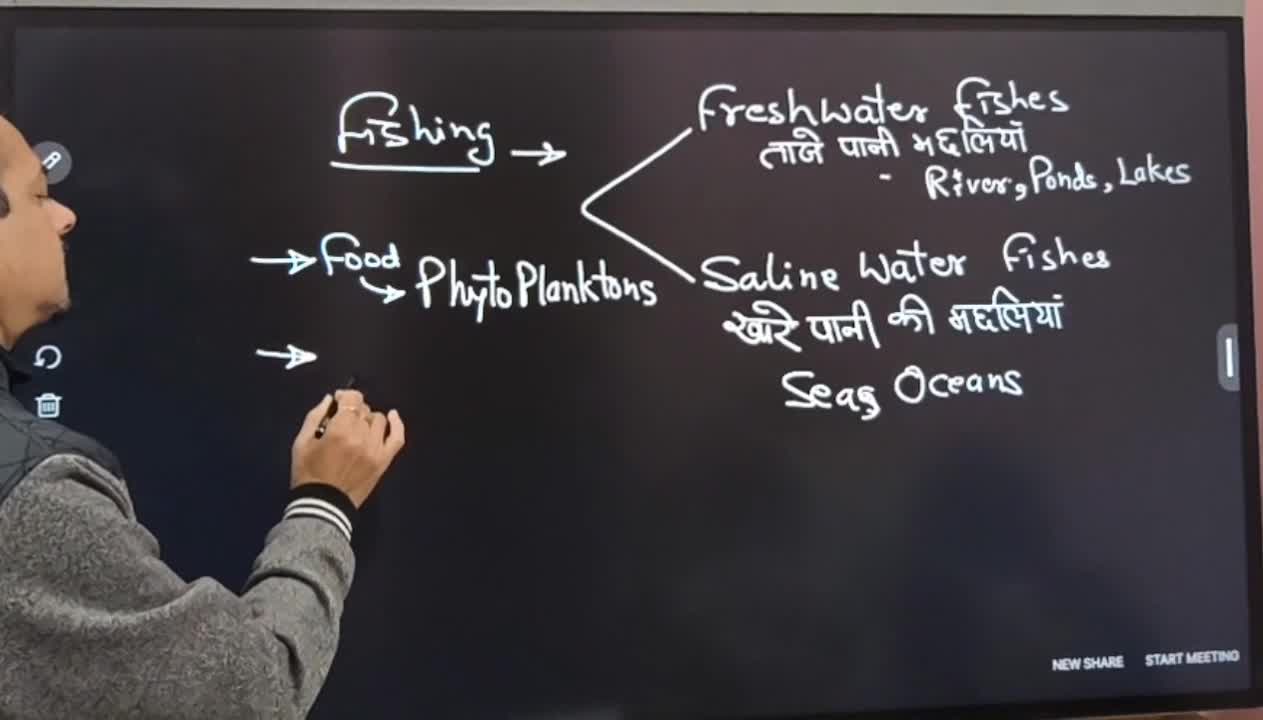 Fishing →
Freshwater fishes
ताजे पानी मछलियाँ
- River, Ponds, Lakes
→ Food
↳ PhytoPlanktons
Saline Water Fishes
खारे पानी की मछलियां
Seas Oceans
→
NEW SHARE START MEETING